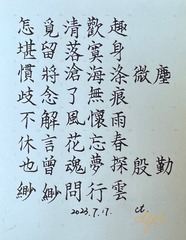 怎覓清歡趣
堪留落寞身
慣將滄海滌微塵
歧念了無痕
不解風懷雨
休言花忘春
也曾魂夢探殷勤
緲緲問行雲
2023.7.17. ct